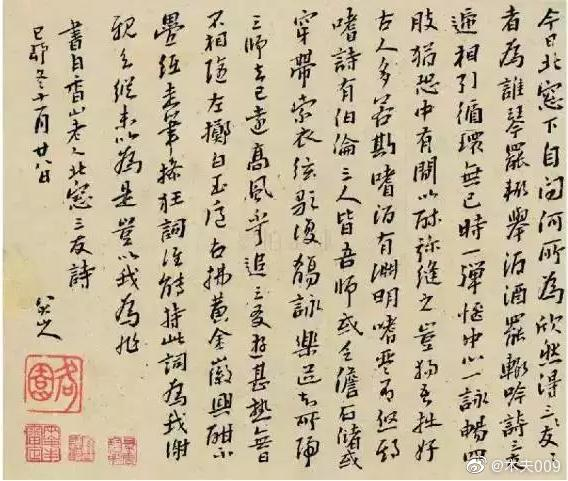 今日北窓下自問何所為欣然得三友三友
者為誰琴罷輒舉酒酒罷輒吟詩三友
遞相引循環無已時一彈愜中心一詠暢四
肢猶恐中有間以酎弥縫之豈獨吾拙好
古人多若斯嗜酒有淵明嗜琴有啓期
嗜詩有伯倫三人皆吾師或乏儋石儲或
穿帶索衣絃歌復觴詠樂道知所歸
三師去已遠高風可追三友游甚熟無日
不相隨左擲白玉卮右拂黃金徽興酣不
疊紙走筆操狂詞誰能持此詞為我謝
親知縱未以為是豈以我為非
書白香山老人北窓三友詩
己卯冬十一月廿八日
八大山人
@米夫009